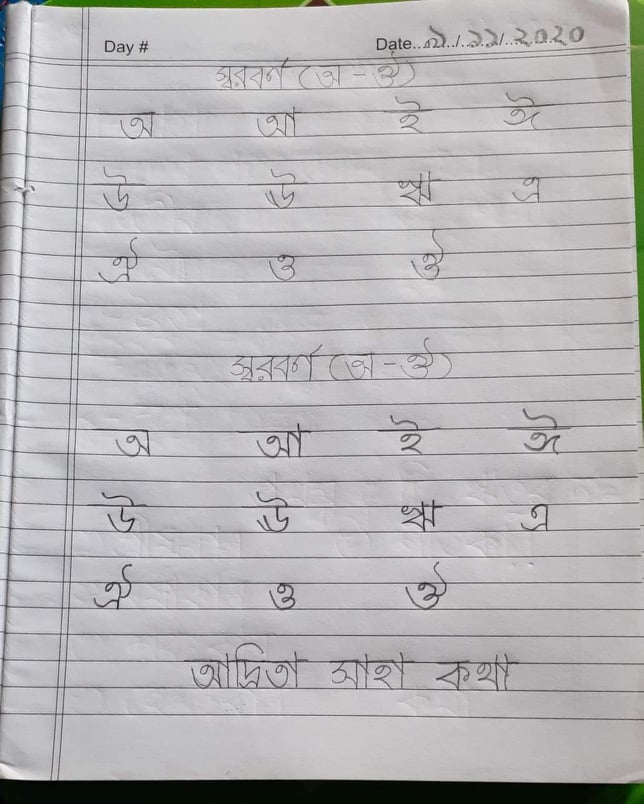 Day # Date..৯./.১১/..২০২০
স্বরবর্ণ (অ - ঔ)
অ আ ই ঈ
উ ঊ ঋ এ
ঐ ও ঔ
স্বরবর্ণ (অ - ঔ)
অ আ ই ঈ
উ ঊ ঋ এ
ঐ ও ঔ
আদ্রিতা সাহা কথা